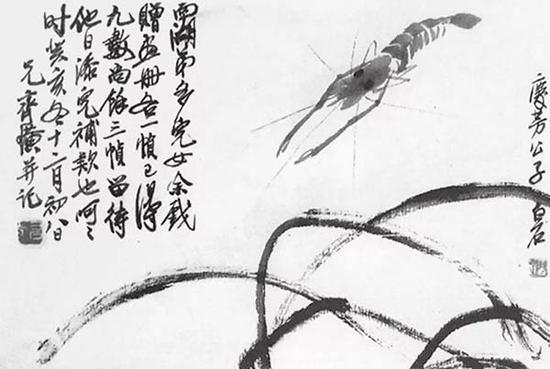 慶芳公子 白石
南湖弟多兒女余戲
贈畫冊各一幀已得
九數尚餘三幀留待
他日添兒補款也呵々
时癸亥冬十二月初八日
兄齊璜并记